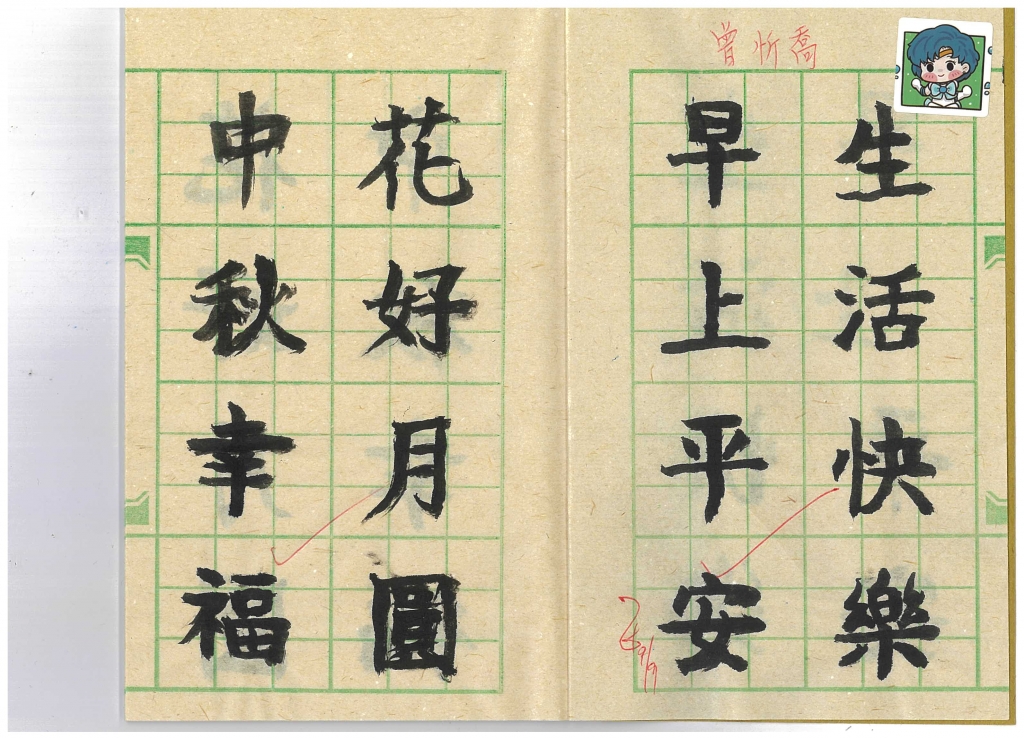 曾忻喬
生活快樂
早上平安
花好月圓
中秋幸福